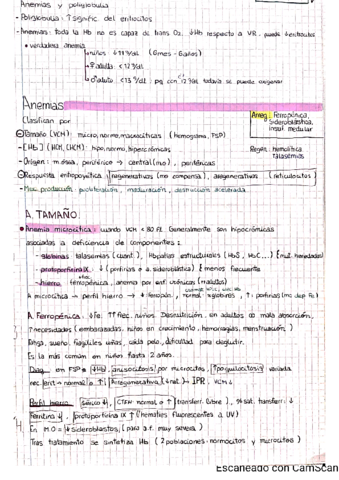 Anemias y poliglobulia
- Poliglobulia: ↑ signific. del eritrocitos
- Anemias: toda la Hb no es capaz de trans O2. ↓Hb respecto a VR. puede ↓eritrocitos
• verdadera anemia
niños <11 g/dl (6mes-6años)
♀ adulta <12 g/dl
♂ adulto <13 g/dl: pq con 12 g/dl todavía se puede oxigenar
Anemias:
Clasifican por
Arreg: Ferropénica, Sideroblástica, insuf. medular
Regen: Hemolítica talasemias
Tamaño (VCM): micro, normo, macrocíticas (hemograma, FSP)
- [Hb] (HCM, CHCM): hipo, normo, hipercrómicas
- Origen: médula, periférico → central (mo), periféricas
Respuesta eritropoyética: regenerativas (mo compensa), arregenerativas (reticulocitos)
- Mec. producción: proliferación, maduración, destrucción acelerada
A. TAMAÑO.
• Anemia microcítica: cuando VCM < 80 fl. Generalmente son hipocrómicas
asociadas a deficiencia de componentes:
- globinas: talasemias (cuant.), Hbpatías estructurales (HbS, HbC...) [mut. heredadas]
- protoporfirina IX: ↓ (porfirias o a. sideroblástica) menos frecuente
- hierro: ferropénica, anemia por enf. crónicas (adultos)
A. microcítica → perfil hierro → ↓ ferropén., normal: globinas, ↑: porfirias (mo dep Fe)
A. Ferropénica. ↓Fe. ↑↑frec. niños. Desnutrición, en adultos a mala absorción,
↑ necesidades (embarazadas, niños en crecimiento, hemorragias, menstruación)
Fatiga, sueño, fragilidad uñas, caída pelo, dificultad para deglutir.
Es la más común en niños hasta 2 años.
Diag. en FSP ↓Hb, anisocitosis por microcitos, poiquilocitosis variada
rec. plaq → normal o ↑ Arregenerativa → IPR, VCM ↓
Perfil hierro: Sérico ↓, CTFH normal o ↑ (transferr. libre), % sat. transferr. ↓
Ferritina ↓, protoporfirina IX ↑ (hematíes fluorescentes a UV)
En MO = ↓ sideroblastos (para a.f. muy severa)
Tras tratamiento se sintetiza Hb (2 poblaciones: normocitos y microcitos)
Escaneado con CamScan